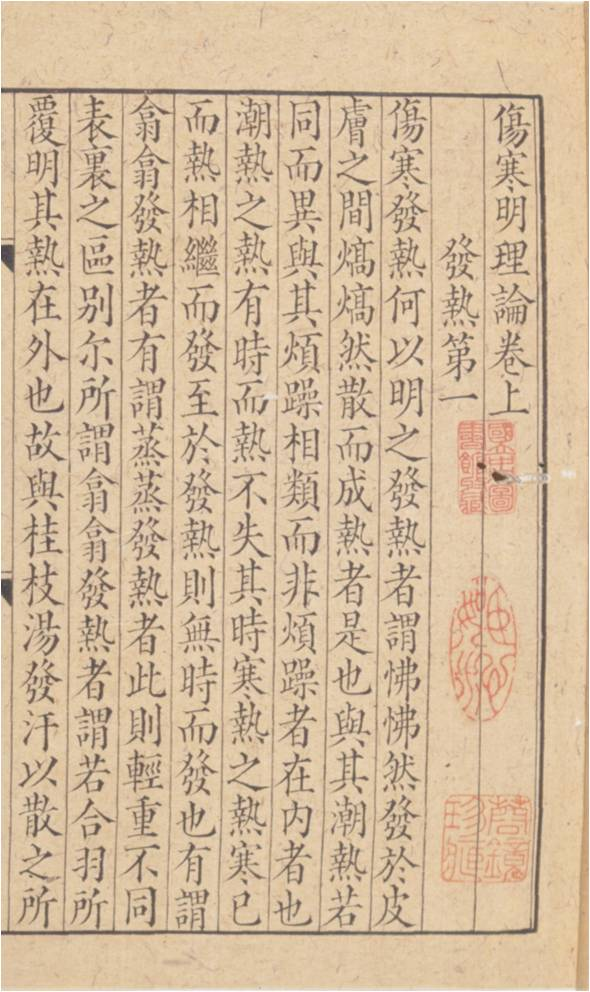 傷寒明理論卷上
發熱第一
傷寒發熱何以明之發熱者謂怫怫然發於皮
膚之間熇熇然散而成熱者是也與其潮熱若
同而異與其煩躁相類而非煩躁者在内者也
潮熱之熱有時而熱不失其時寒熱之熱寒已
而熱相繼而發至於發熱則無時而發也有謂
翕翕發熱者有謂蒸蒸發熱者此則輕重不同
表裏之區别尔所謂翕翕發熱者謂若合羽所
覆明其熱在外也故與桂枝湯發汗以散之所
國立中央圖書館收藏